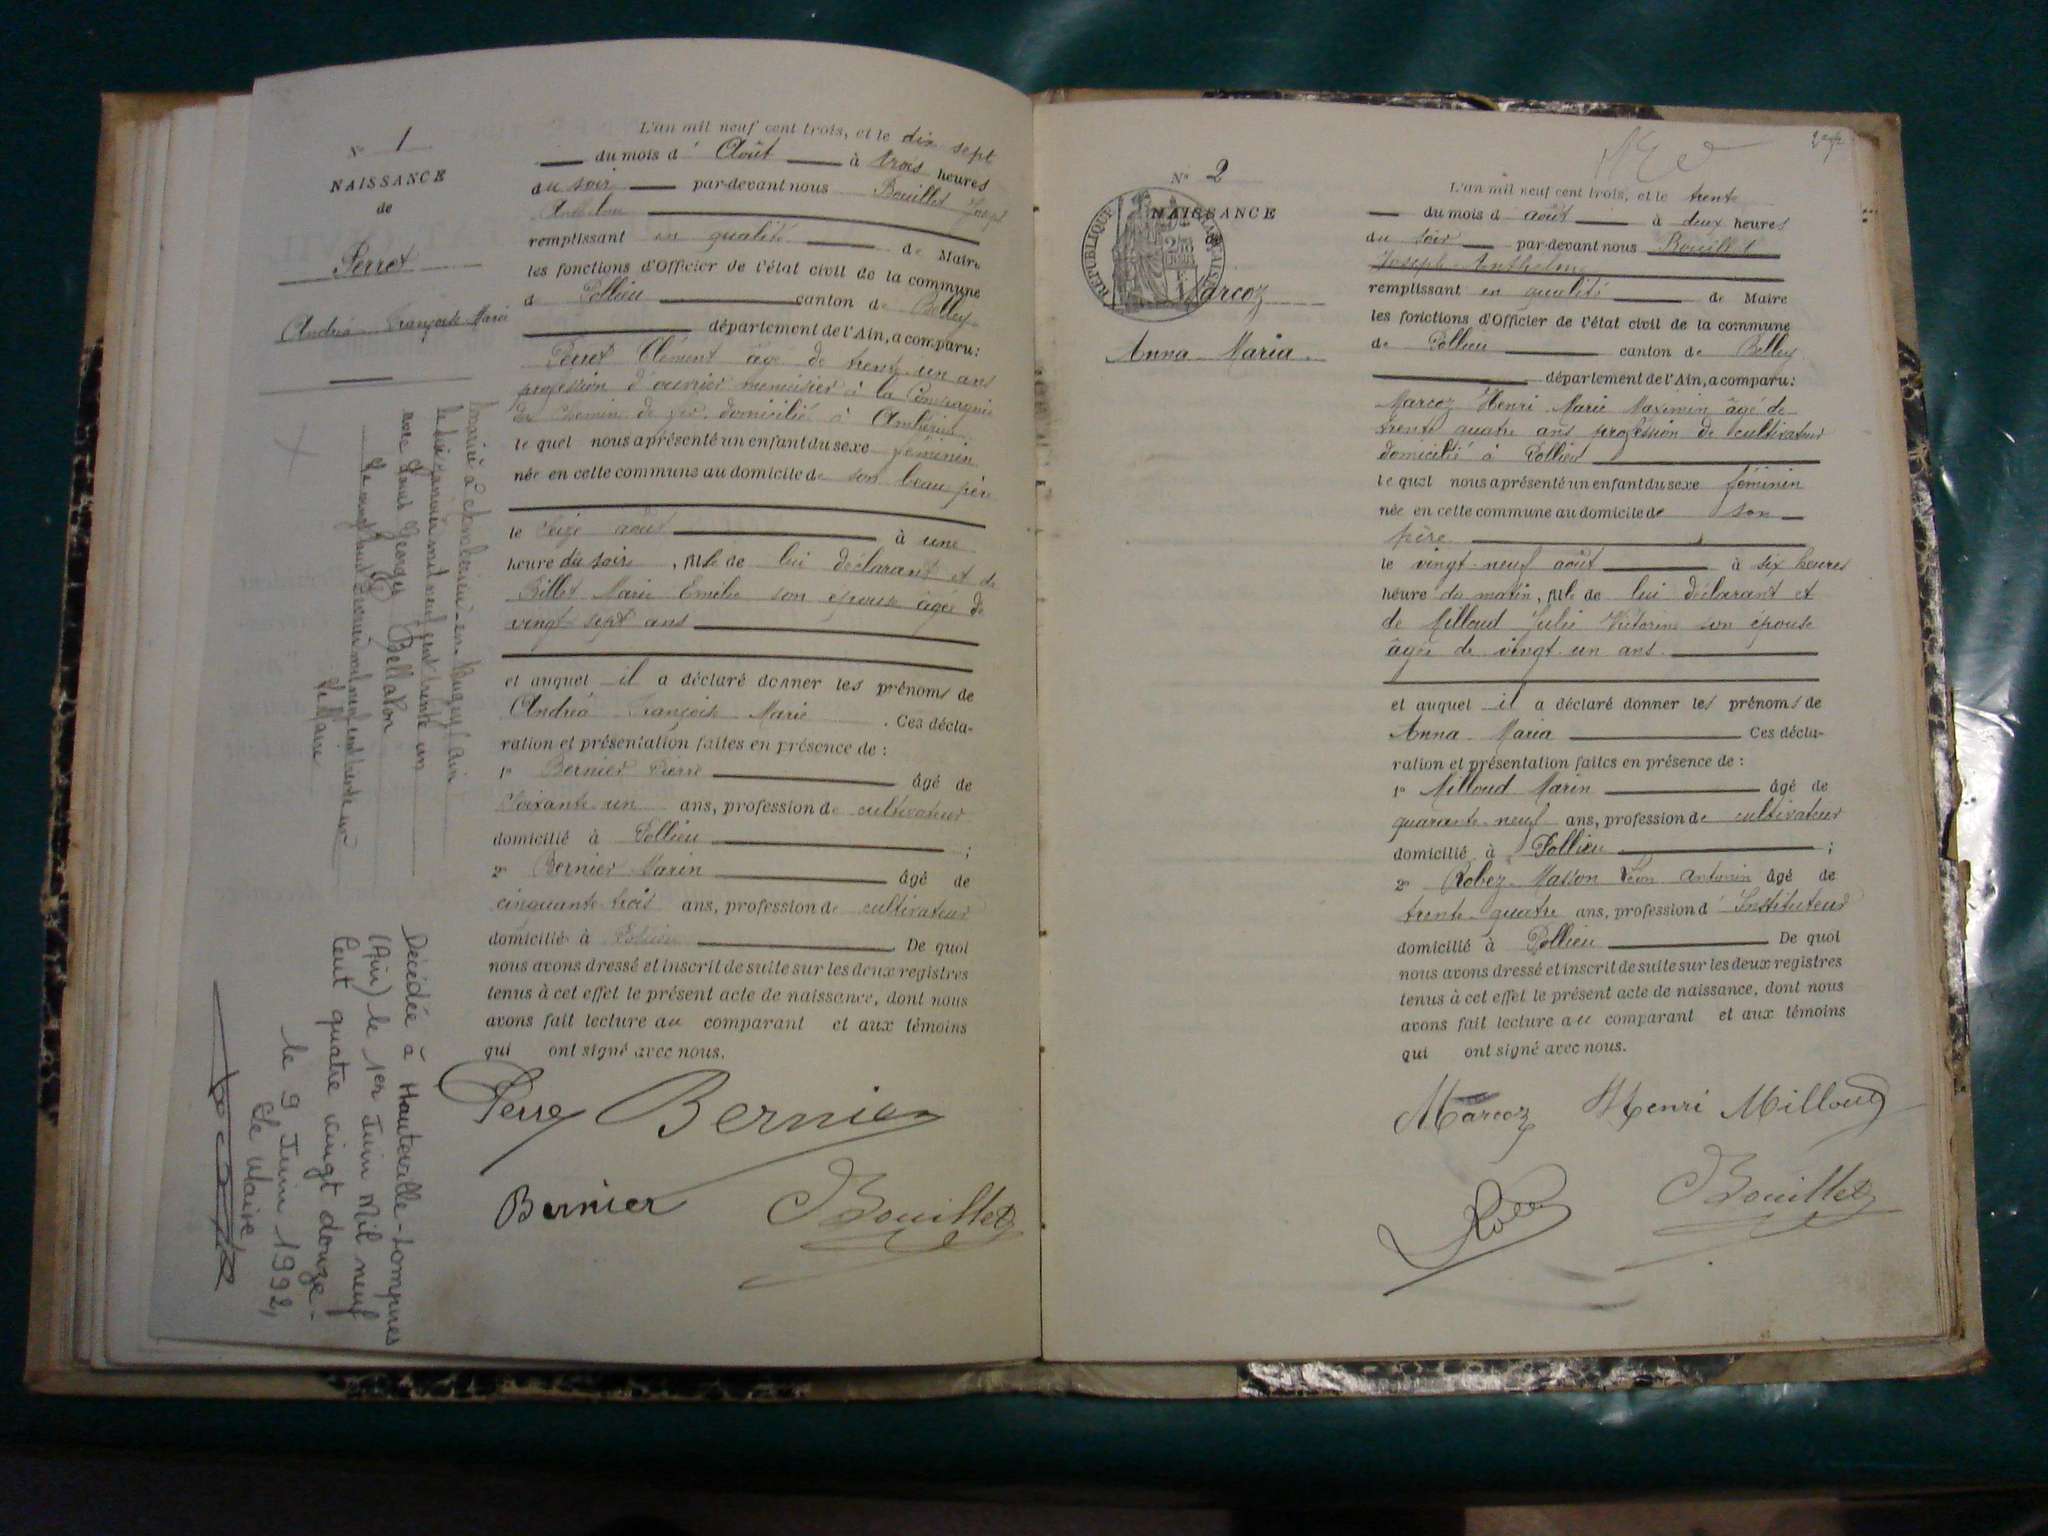 N° 1
NAISSANCE
de
Perret
Andréa Françoise Marie
L'an mil neuf cent trois, et le dix sept
du mois d' Août à trois heures
du soir par-devant nous Bouillet Joseph
Anthelme
remplissant en qualité de Maire
les fonctions d'Officier de l'état civil de la commune
d Pollieu canton de Belley
département de l'Ain, a comparu:
Perret Clément âgé de trente un ans
profession d'ouvrier menuisier à la Compagnie
du chemin de fer domicilié à Ambérieu
le quel nous a présenté un enfant du sexe féminin
née en cette commune au domicile de son beau père
le seize août à une
heure du soir, fille de lui déclarant et de
Billet Marie Emélie son épouse âgée de
vingt sept ans
et auquel il a déclaré donner les prénoms de
Andréa Françoise Marie. Ces décla-
ration et présentation faites en présence de:
1° Bernier Pierre âgé de
soixante un ans, profession de cultivateur
domicilié à Pollieu;
2° Bernier Marin âgé de
cinquante trois ans, profession de cultivateur
domicilié à Pollieu. De quoi
nous avons dressé et inscrit de suite sur les deux registres
tenus à cet effet le présent acte de naissance, dont nous
avons fait lecture au comparant et aux témoins
qui ont signé avec nous.
Bernier
Bernier JBouillet
Marié à Ambérieu-en-Bugey (Ain)
le janvier mil neuf cent trente un
avec Georges Bellaton
mil neuf cent trente un
Le Maire
Décédée à Hauteville-Lompnes
(Ain) le 1er Juin Mil neuf
Cent quatre vingt douze-
le 9 Juin 1992,
Le Maire
N° 2
NAISSANCE
de
REPUBLIQUE FRANÇAISE
Marcoz
Anna Maria
L'an mil neuf cent trois, et le trente
du mois d août à deux heures
du soir par-devant nous Bouillet
Joseph Anthelme
remplissant en qualité de Maire
les fonctions d'Officier de l'état civil de la commune
de Pollieu canton de Belley
département de l'Ain, a comparu:
Marcoz Henri Marie Maximin âgé de
trente quatre ans profession de cultivateur
domicilié à Pollieu
le quel nous a présenté un enfant du sexe féminin
née en cette commune au domicile de son
père
le vingt-neuf août à six heures
heure du matin, fille de lui déclarant et
de Milloud Julie Victorine son épouse
âgée de vingt-un ans.
et auquel il a déclaré donner les prénoms de
Anna Maria Ces décla-
ration et présentation faites en présence de:
1° Milloud Marin âgé de
quarante-neuf ans, profession de cultivateur
domicilié à Pollieu;
2° Robez-Masson Léon Antonin âgé de
trente-quatre ans, profession d' Instituteur
domicilié à Pollieu De quoi
nous avons dressé et inscrit de suite sur les deux registres
tenus à cet effet le présent acte de naissance, dont nous
avons fait lecture au comparant et aux témoins
qui ont signé avec nous.
Marcoz Henri Milloud
JBouillet